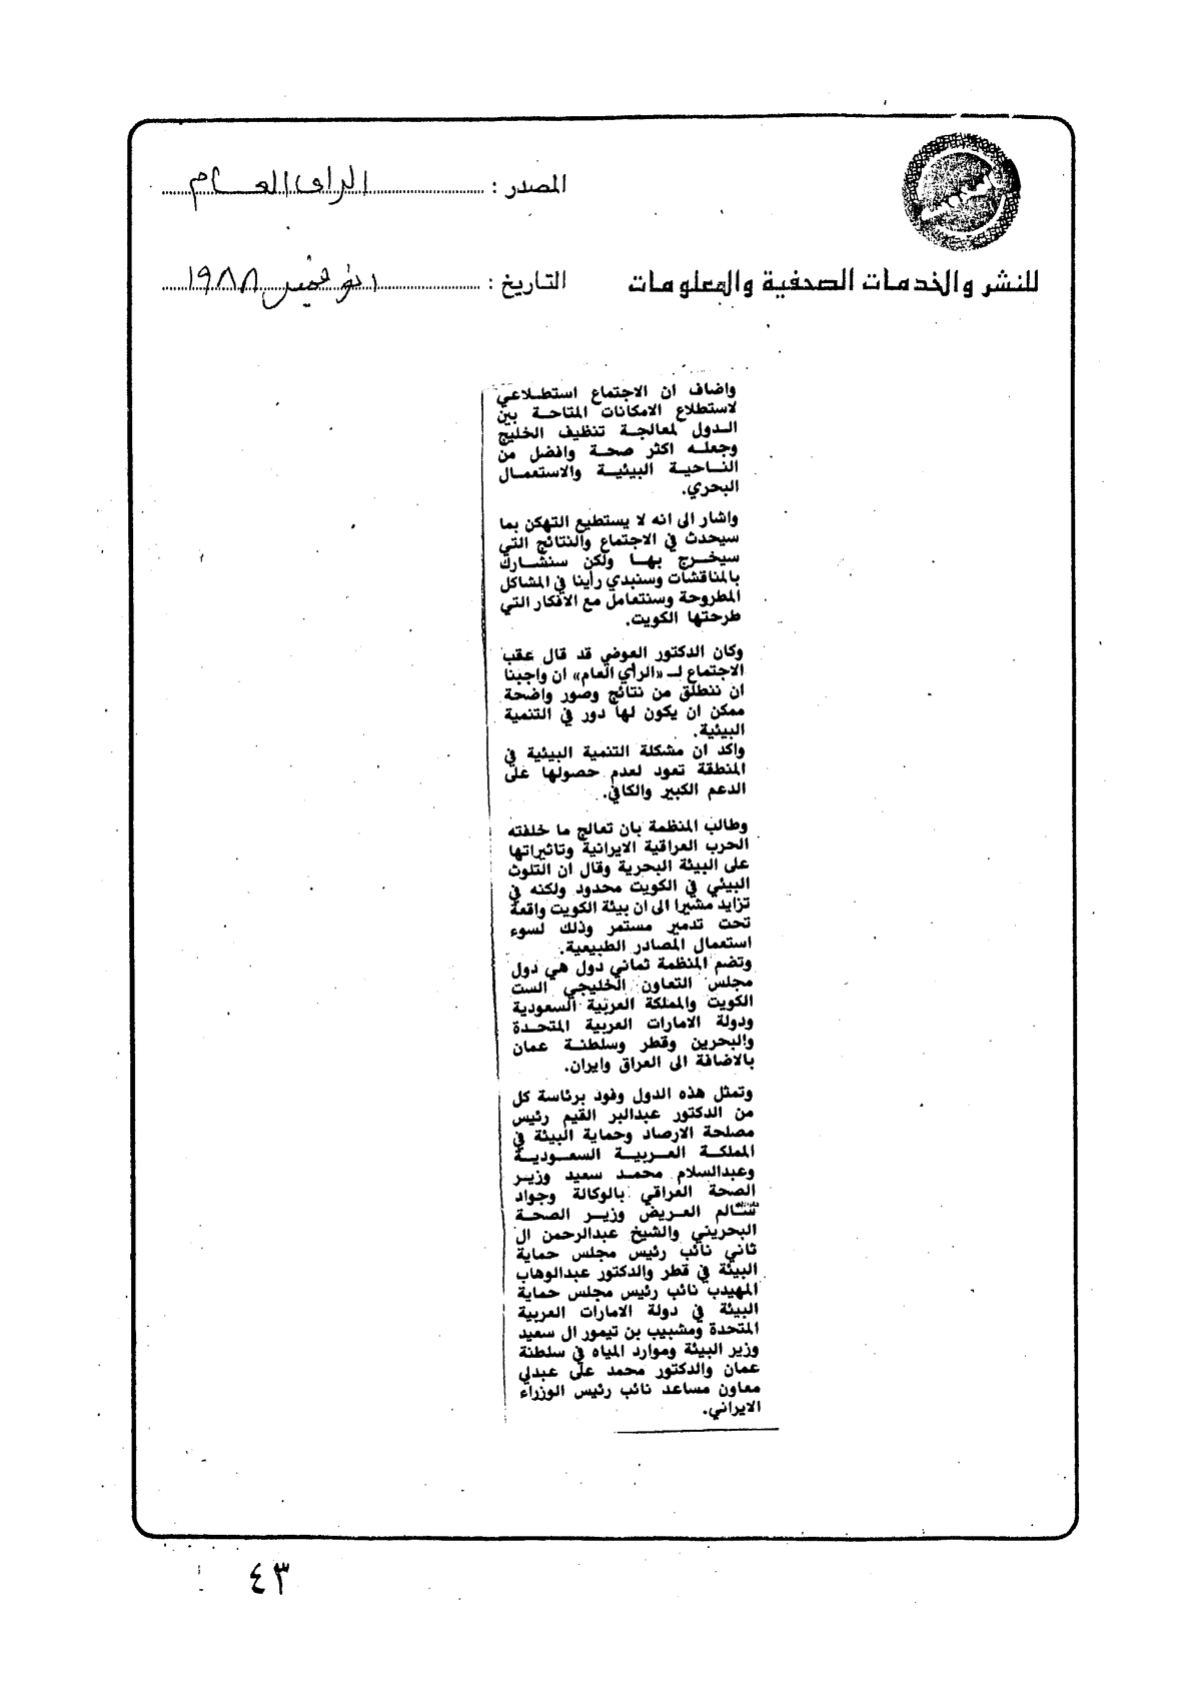 المصدر : الرأى العام
للنشر والخدمات الصحفية والمعلومات
التاريخ : ١ نوفمبر ١٩٨٨
واضاف ان الاجتماع استطلاعي
لاستطلاع الامكانات المتاحة بين
الدول لمعالجة تنظيف الخليج
وجعله اكثر صحة وافضل من
الناحية البيئية والاستعمال
البحري.
واشار الى انه لا يستطيع التهكن بما
سيحدث في الاجتماع والنتائج التي
سيخرج بها ولكن سنشارك
بالمناقشات وسنبدي رأينا في المشاكل
المطروحة وسنتعامل مع الافكار التي
طرحتها الكويت.
وكان الدكتور العوضي قد قال عقب
الاجتماع لـ «الرأي العام» ان واجبنا
ان ننطلق من نتائج وصور واضحة
ممكن ان يكون لها دور في التنمية
البيئية.
واكد ان مشكلة التنمية البيئية في
المنطقة تعود لعدم حصولها على
الدعم الكبير والكافي.
وطالب المنظمة بان تعالج ما خلفته
الحرب العراقية الايرانية وتاثيراتها
على البيئة البحرية وقال ان التلوث
البيئي في الكويت محدود ولكنه في
تزايد مشيرا الى ان بيئة الكويت واقعة
تحت تدمير مستمر وذلك لسوء
استعمال المصادر الطبيعية.
وتضم المنظمة ثماني دول هي دول
مجلس التعاون الخليجي الست
الكويت والمملكة العربية السعودية
ودولة الامارات العربية المتحدة
والبحرين وقطر وسلطنة عمان
بالاضافة الى العراق وايران.
وتمثل هذه الدول وفود برئاسة كل
من الدكتور عبدالبر القيم رئيس
مصلحة الارصاد وحماية البيئة في
المملكة العربية السعودية
وعبدالسلام محمد سعيد وزير
الصحة العراقي بالوكالة وجواد
سالم العريض وزير الصحة
البحريني والشيخ عبدالرحمن ال
ثاني نائب رئيس مجلس حماية
البيئة في قطر والدكتور عبدالوهاب
المهيدب نائب رئيس مجلس حماية
البيئة في دولة الامارات العربية
المتحدة ومشبيب بن تيمور ال سعيد
وزير البيئة وموارد المياه في سلطنة
عمان والدكتور محمد على عبدلي
معاون مساعد نائب رئيس الوزراء
الايراني.
٤٣